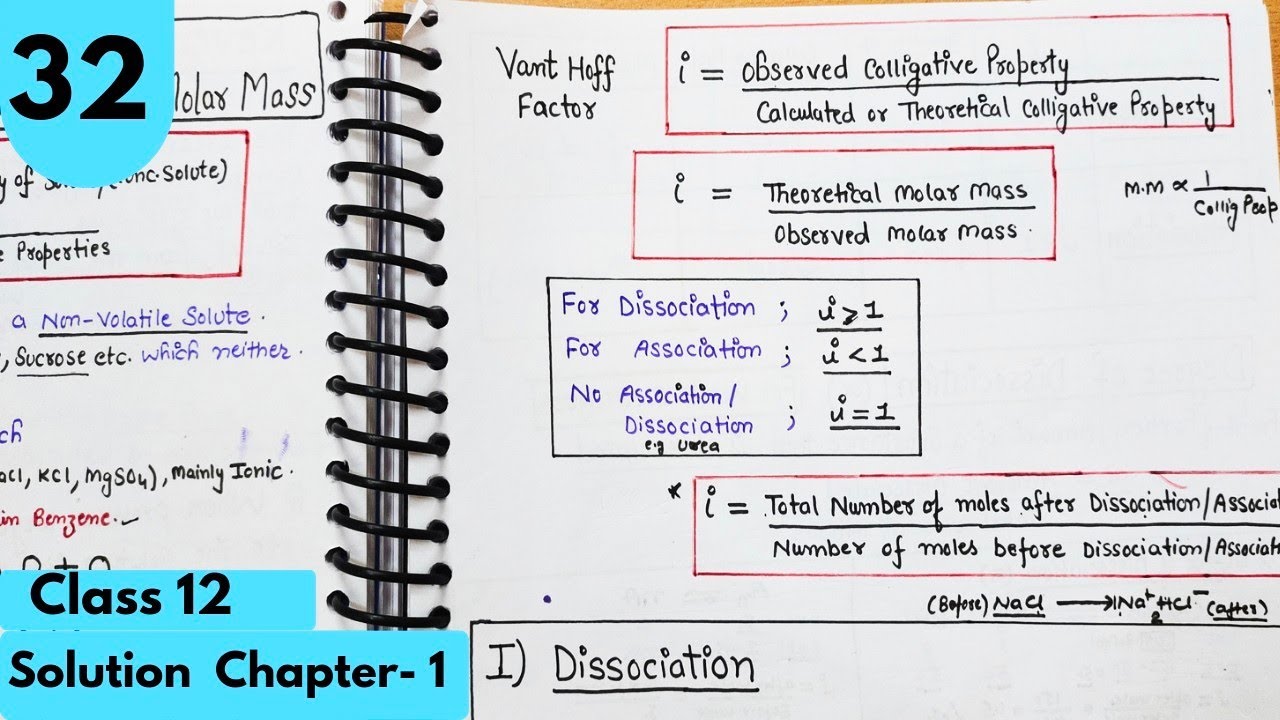 32
Molar Mass
y of Solu (conc. Solute)
Properties
a Non-Volatile Solute.
, Sucrose etc. which neither.
ch
aCl, KCl, MgSO4), mainly Ionic.
in Benzene.
Class 12
Solution Chapter- 1
Vant Hoff
Factor
i = Observed Colligative Property
Calculated or Theoretical Colligative Property
i = Theoretical molar mass
Observed molar mass.
M.M ∝ 1
Collig Prop
For Dissociation ; i ⩾ 1
For Association ; i < 1
No Association/
Dissociation ; i = 1
e.g Urea
* i = Total Number of moles after Dissociation/Associat
Number of moles before Dissociation/Associati
(Before) NaCl → 1Na⁺ + 1Cl⁻ (after)
2
I) Dissociation